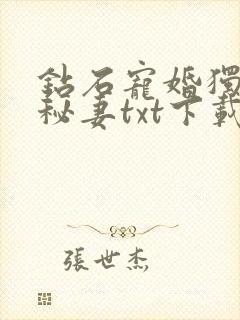 鉆石寵婚獨
秘妻txt下載
張世杰